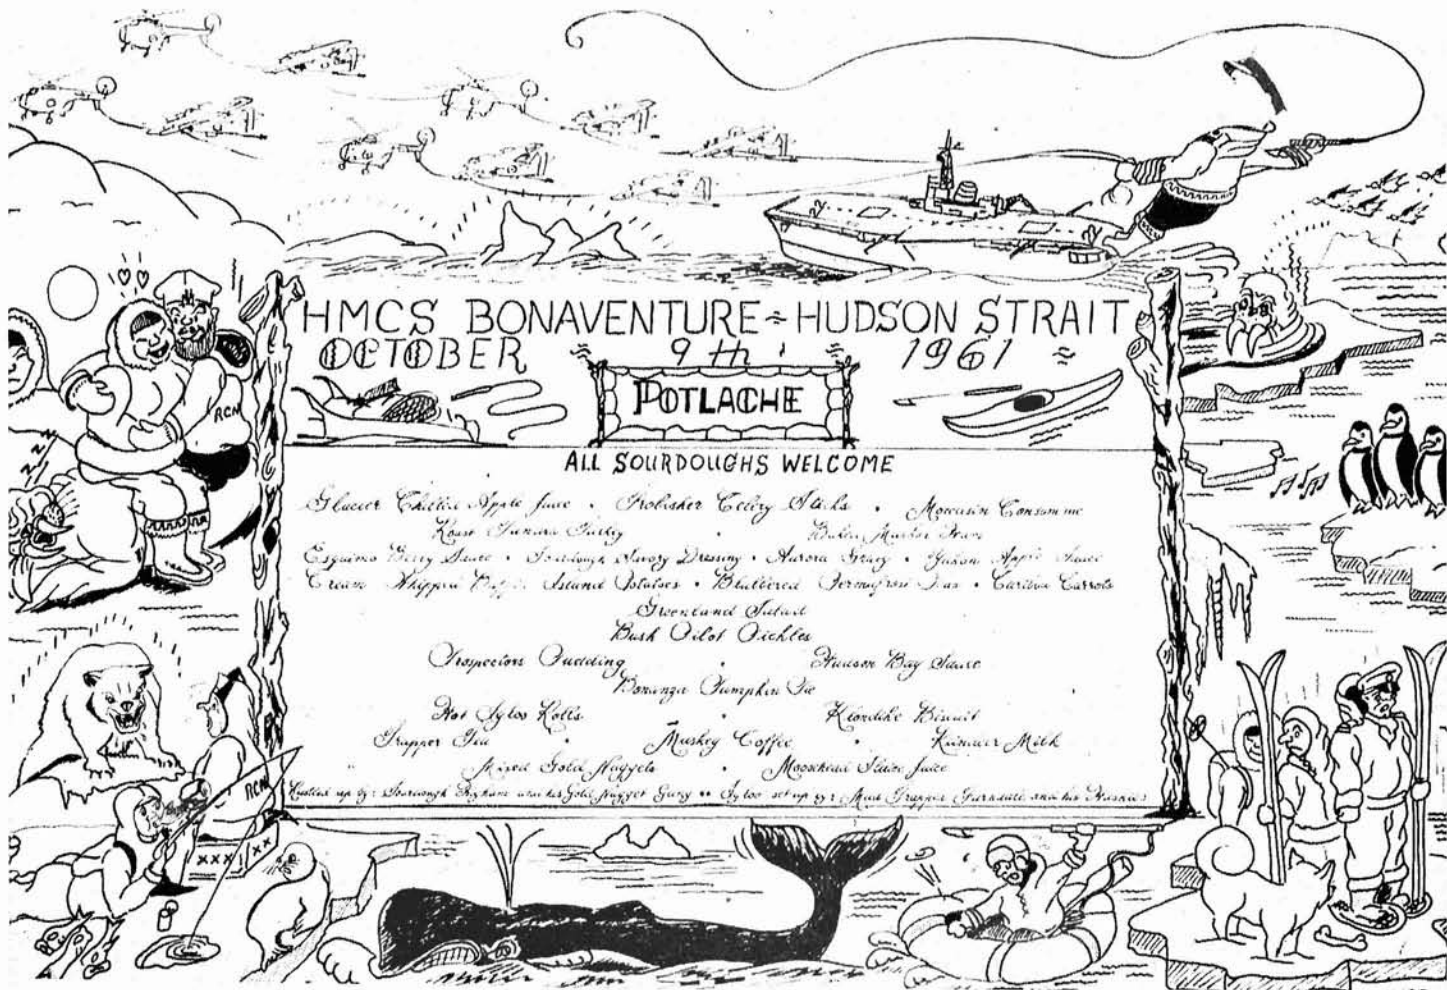 HMCS BONAVENTURE - HUDSON STRAIT
OCTOBER 9th 1961
POTLACHE
ALL SOURDOUGHS WELCOME
Glacier Chilled Apple Juice • Frobisher Celery Sticks • Moccasin Consomme
Roast Tundra Turkey •
Esquimo Berry Sauce • Sourdough Savory Dressing • Aurora Gravy • Yukon Apple Sauce
Cream Whipped Island Potatoes • Blubbered Permafrost • Caribou Carrots
Greenland Salad
Bush Pilot Pickles
Prospectors Pudding • Hudson Bay Sauce
Bonanza Pumpkin Pie
Hot Igloo Rolls • Klondike Biscuit
Trapper Tea • Muskeg Coffee • Milk
Mixed Gold Nuggets • Moosehead Juice
up by: Sourdough and his Gold Nugget Gang •• Igloo set up by: Mad Trapper and his Huskies
RCN
RCN
XXX XX